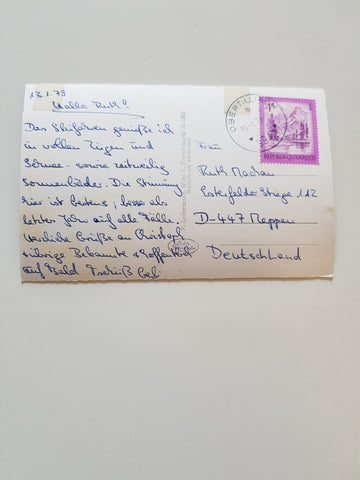 13.1.79
Hallo Ruth!
Das Skifahren genieße ich
in vollen Zügen und
sowie zeitweilig
Sonnenbäder. Die Stimmung
hier ist bestens, besser als
letztes Jahr auf alle Fälle.
Herzliche Grüße an Christoph
+ übrige Bekannte + hoffentlich
auf bald Tschüß
OBERTILL
REPUBLIK ÖSTERREICH
Frau
Ruth
114
D-447 Meppen
Deutschland